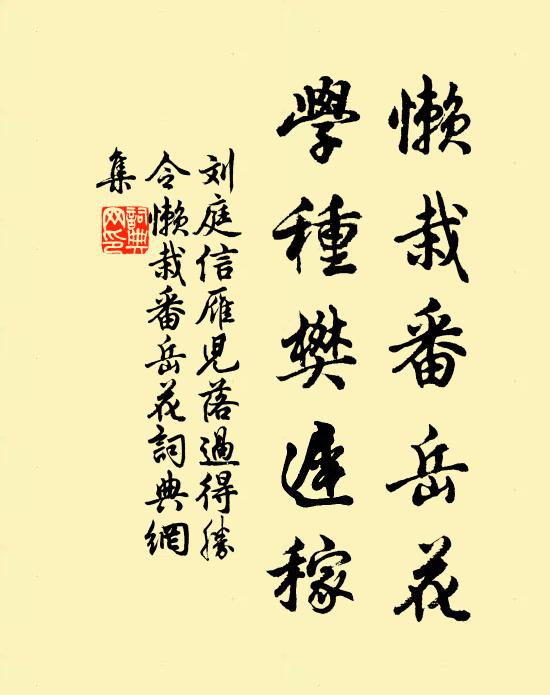 懒栽番岳花
學種樊遲稼
刘庭信雁児落過得勝
令懒栽番岳花詞典網
集
詞典
网印